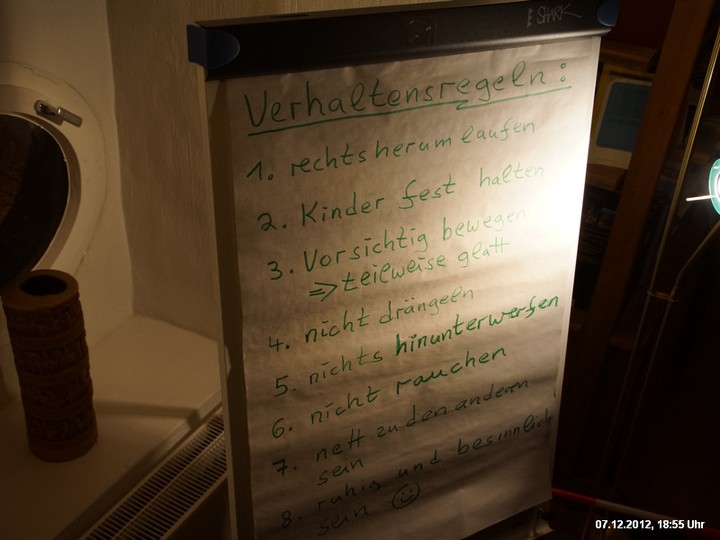 SHARK
Verhaltensregeln:
1. rechtsherum laufen
2. Kinder fest halten
3. Vorsichtig bewegen
=> teilweise glatt
4. nicht drängeln
5. nichts hinunterwerfen
6. nicht rauchen
7. nett zu den anderen
sein
8. ruhig und besinnlich
sein ☺
07.12.2012, 18:55 Uhr